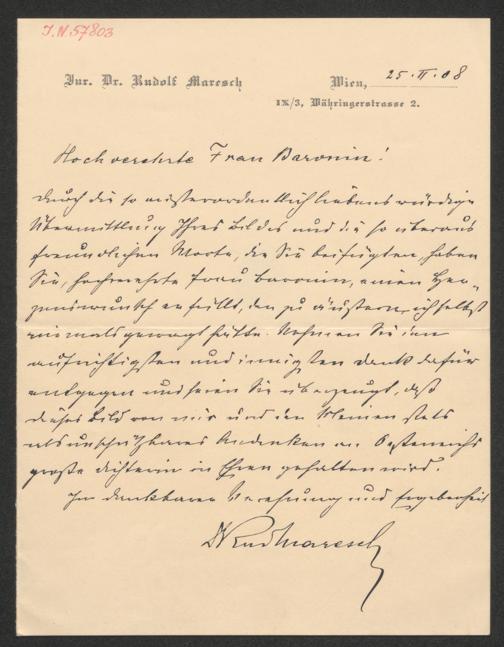 J.N. 57803
Jur. Dr. Rudolf Maresch
Wien, 25. II. 08
IX/3, Währingerstrasse 2.
Hochverehrte Frau Baronin!
Durch die so außerordentlich liebenswürdige
Übermittlung Ihres Bildes und die so überaus
freundlichen Worte, die Sie beifügten, haben
Sie, hochverehrte Frau Baronin, einen Her-
zenswunsch erfüllt, den zu äußern ich selbst
niemals gewagt hätte. Nehmen Sie den
aufrichtigsten und innigsten Dank dafür
entgegen und seien Sie überzeugt, daß
dieses Bild von mir und den Meinen stets
als unschätzbares Andenken an Oesterreichs
große Dichterin in Ehren gehalten wird.
In dankbarer Verehrung und Ergebenheit
Dr Rud Maresch